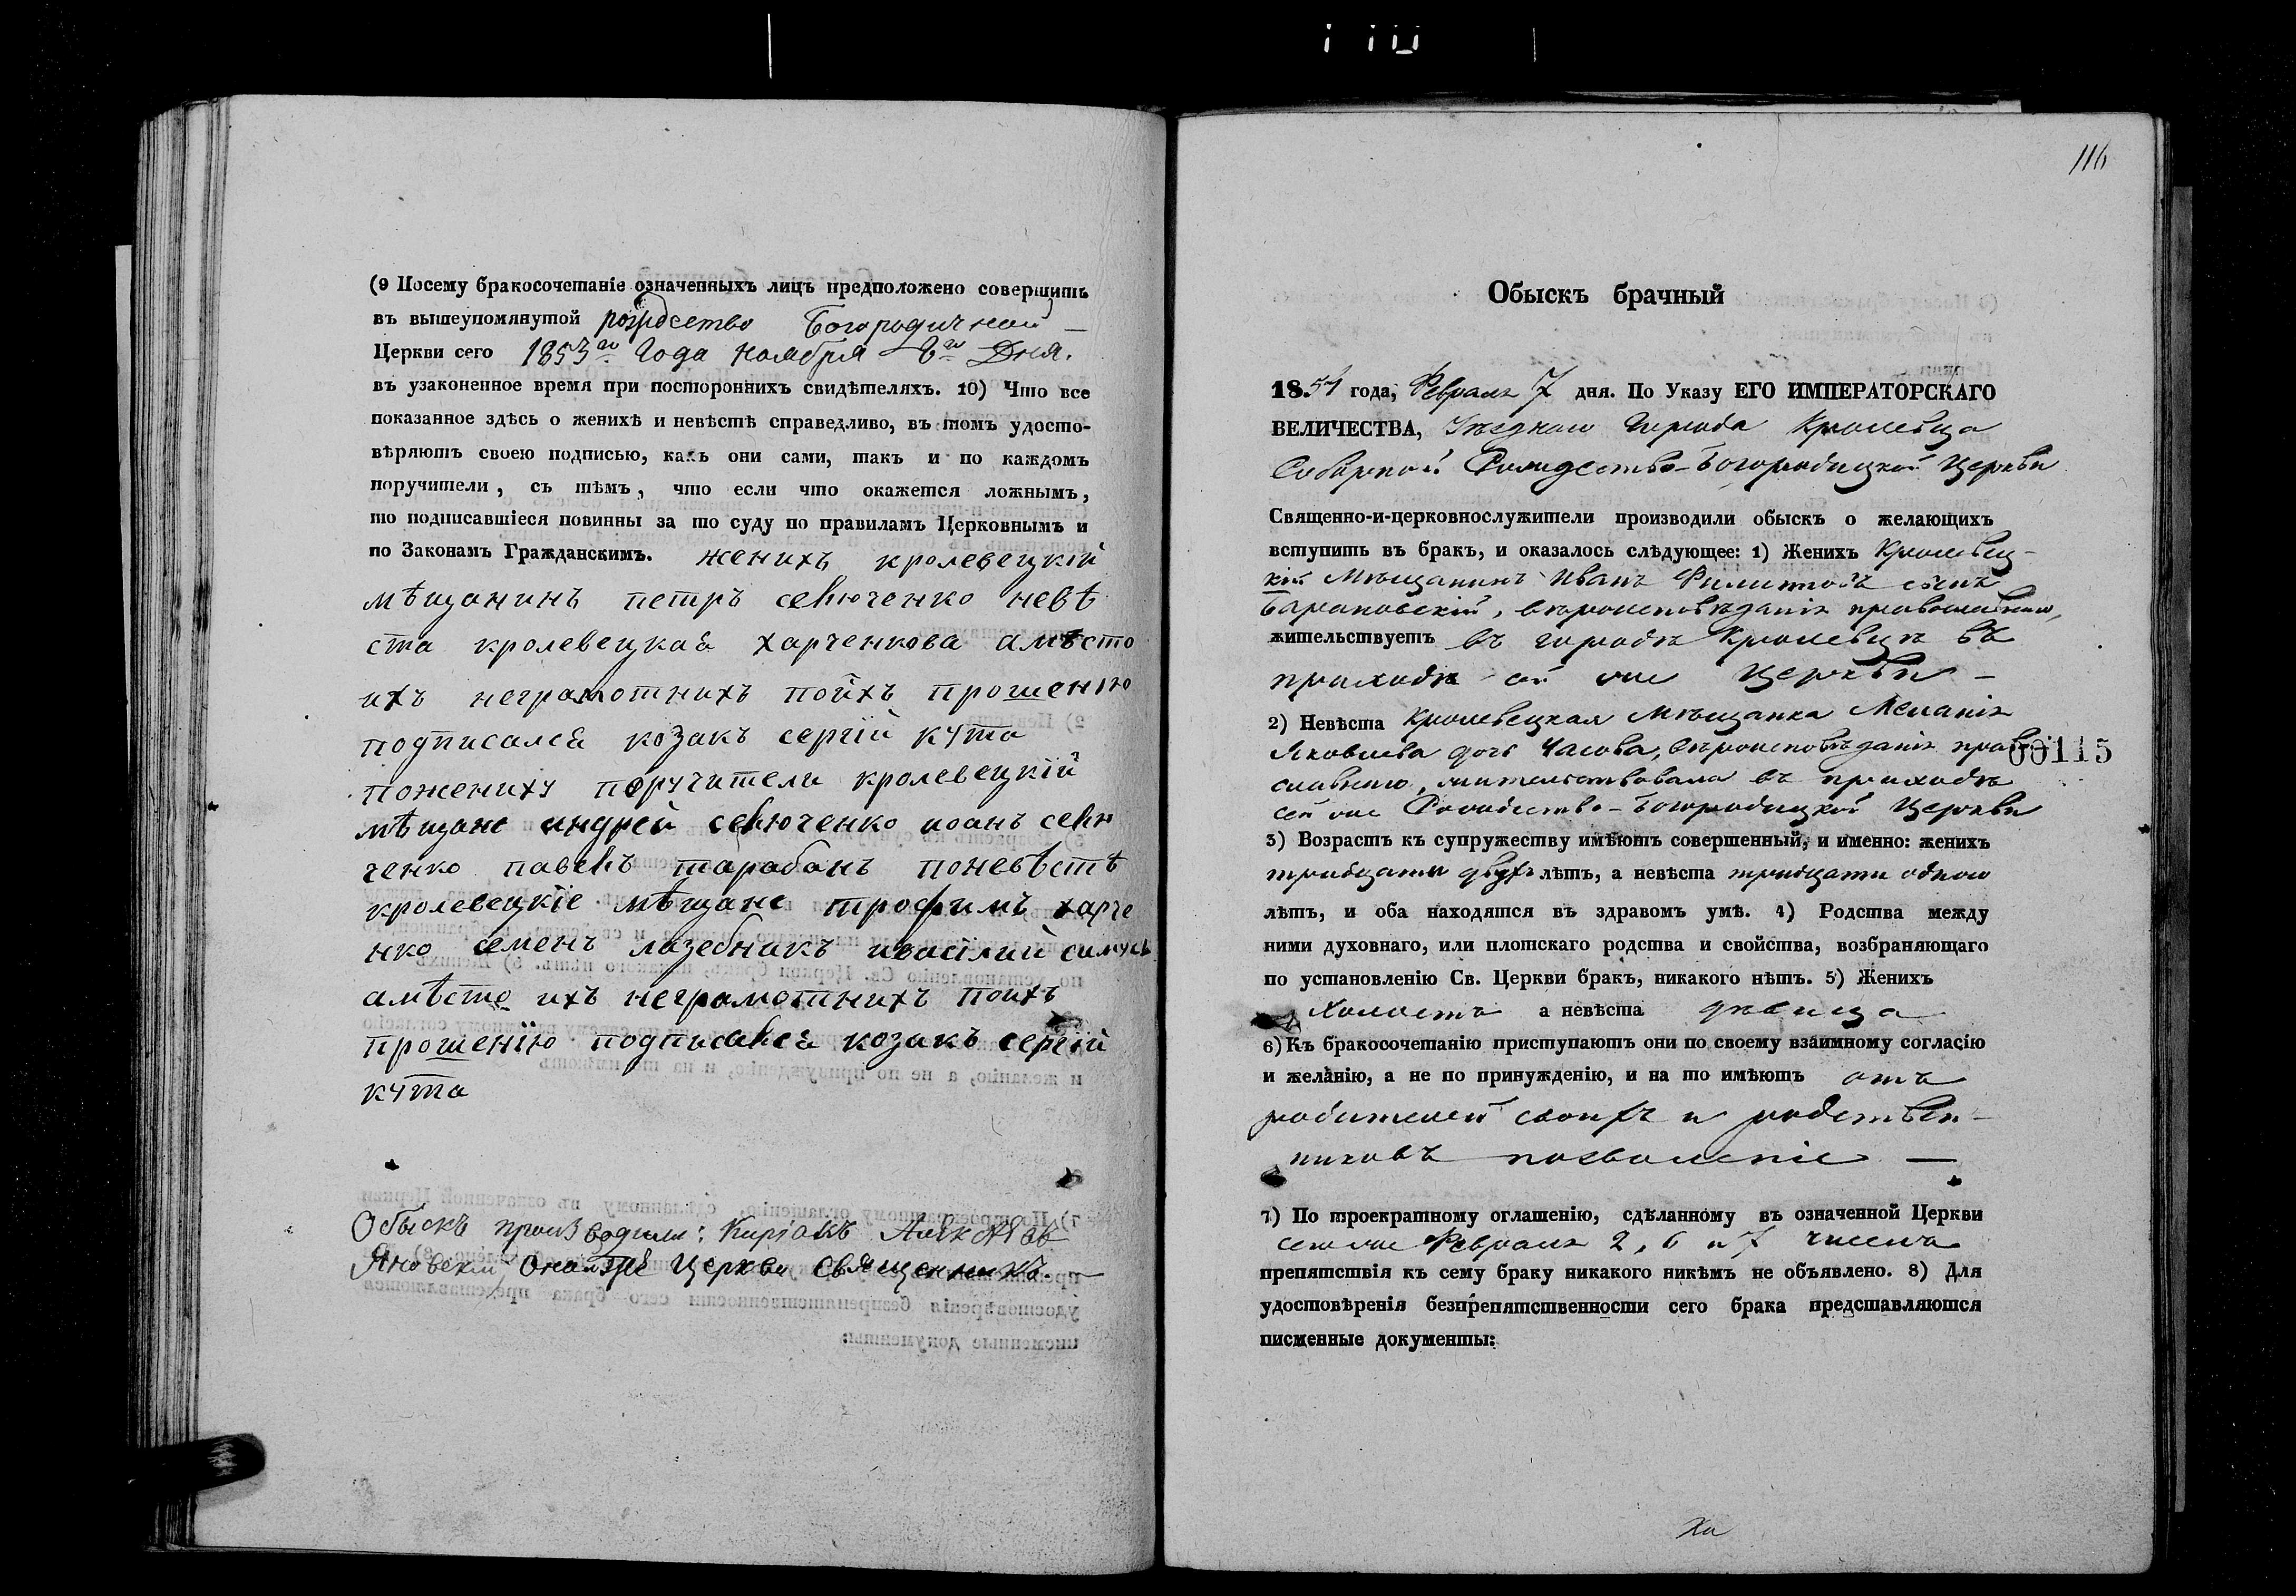 (9 Посему бракосочетаніе означенныхъ лицъ предположено совершить
въ вышеупомянутой рождество Богородичной —
Церкви сего 1853го года ноября 8го Дня.
въ узаконенное время при постороннихъ свидѣтеляхъ. 10) Что все
показанное здѣсь о женихѣ и невѣстѣ справедливо, въ томъ удосто-
вѣряютъ своею подписью, какъ они сами, такъ и по каждомъ
поручители, съ тѣмъ, что если что окажется ложнымъ,
то подписавшіеся повинны за то суду по правиламъ Церковнымъ и
по Законамъ Гражданскимъ. женихъ кролевецкій
мѣщанинъ петръ севюченко невѣ
ста кролевецкая харченкова амѣсто
ихъ неграмотнихъ поихъ прошенію
подписался козакъ сергій кута
пожениху поручители кролевецкій
мѣщане андрей севюченко иоанъ севю
ченко павелъ тарабанъ поневѣстѣ
кролевецкіе мѣщане трофимъ харче
нко семенъ лазебникъ ивасілий
амѣсто ихъ неграмотнихъ поихъ
прошенію подписався козакъ сергій
кута
Обыскъ производили: Киріакъ
Яновскій оной же Церкви Священникъ. —
116
Обыскъ брачный
1854 года, Февраля 7 дня. По Указу ЕГО ИМПЕРАТОРСКАГО
ВЕЛИЧЕСТВА, Уѣзднаго Города Кролевца
Соборной Рождество-Богородицкой Церкви
Священно-и-церковнослужители производили обыскъ о желающихъ
вступить въ бракъ, и оказалось слѣдующее: 1) Женихъ Кролевец-
кій Мѣщанинъ Иванъ Филиповъ сынъ
Барановскій, вѣроисповѣданія православнаго,
жительствуетъ въ городѣ Кролевцѣ въ
приходѣ сей же Церкви —
2) Невѣста Кролевецкая Мѣщанка Меланія
Яковлева дочь Часова, вѣроисповѣданія право-
00115
славнаго, жительствовала въ приходѣ
сей же Рождество-Богородицкой Церкви
3) Возрастъ къ супружеству имѣютъ совершенный, и именно: женихъ
тридцати двухъ лѣтъ, а невѣста тридцати одного
лѣтъ, и оба находятся въ здравомъ умѣ. 4) Родства между
ними духовнаго, или плотскаго родства и свойства, возбраняющаго
по установленію Св. Церкви бракъ, никакого нѣтъ. 5) Женихъ
Холостъ а невѣста дѣвица
6) Къ бракосочетанію приступаютъ они по своему взаимному согласію
и желанію, а не по принужденію, и на то имѣютъ отъ
родителей своихъ и родствен-
никовъ позволеніе —
7) По троекратному оглашенію, сдѣланному въ означенной Церкви
сего же Февраля 2, 6 и 7 числа
препятствія къ сему браку никакого никѣмъ не объявлено. 8) Для
удостовѣренія безпрепятственности сего брака представляются
писменные документы: